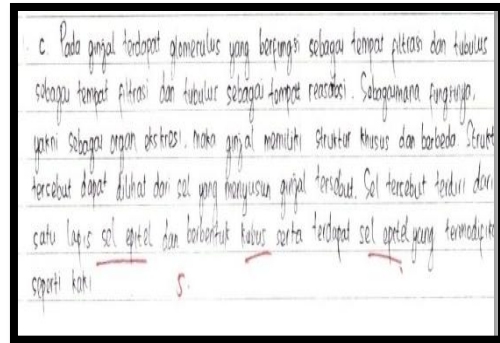 c. Pada ginjal terdapat glomerulus yang berfungsi sebagai tempat filtrasi dan tubulus
sebagai tempat filtrasi dan tubulus sebagai tempat reasorbsi. Sebagaimana fungsinya,
yakni sebagai organ ekskresi, maka ginjal memiliki struktur khusus dan berbeda. Strukt
tersebut dapat dilihat dari sel yang menyusun ginjal tersebut. Sel tersebut terdiri dari
satu lapis sel epitel dan berbentuk kubus serta terdapat sel epitel yang termodifik
seperti kaki
5.